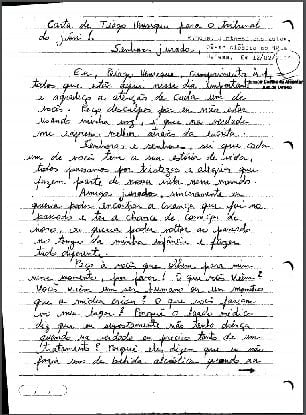 Carta de Tiago Henrique para o tribunal
do júri!
Senhores jurados,
Eu, Tiago Henrique, cumprimento a
todos que estão aqui nesse dia importante
e agradeço a atenção de cada um de
vocês. Peço desculpas por eu não estar
usando minha voz, é que na verdade
me expresso melhor através da escrita.
Senhoras e senhores, sei que cada
um de vocês tem a sua estória de vida,
todos passamos por tristezas e alegrias que
fazem parte da nossa vida nesse mundo.
Amigos jurados, sinceramente eu
queria poder encontrar a criança que fui no
passado e ter a chance de começar de
novo, eu queria poder voltar ao passado
no tempo da minha infância e fazer
tudo diferente.
Peço à vocês que olhem para mim
nesse momento, por favor! O que vocês vêem?
Vocês vêem um ser humano ou um monstro
que a mídia criou? O que vocês fariam
no meu lugar? Porquê o laudo médico
diz que eu supostamente não tenho doença
quando na verdade eu preciso tanto de um
tratamento? Porquê eles dizem que eu não
fazia uso de bebida alcoólica quando na